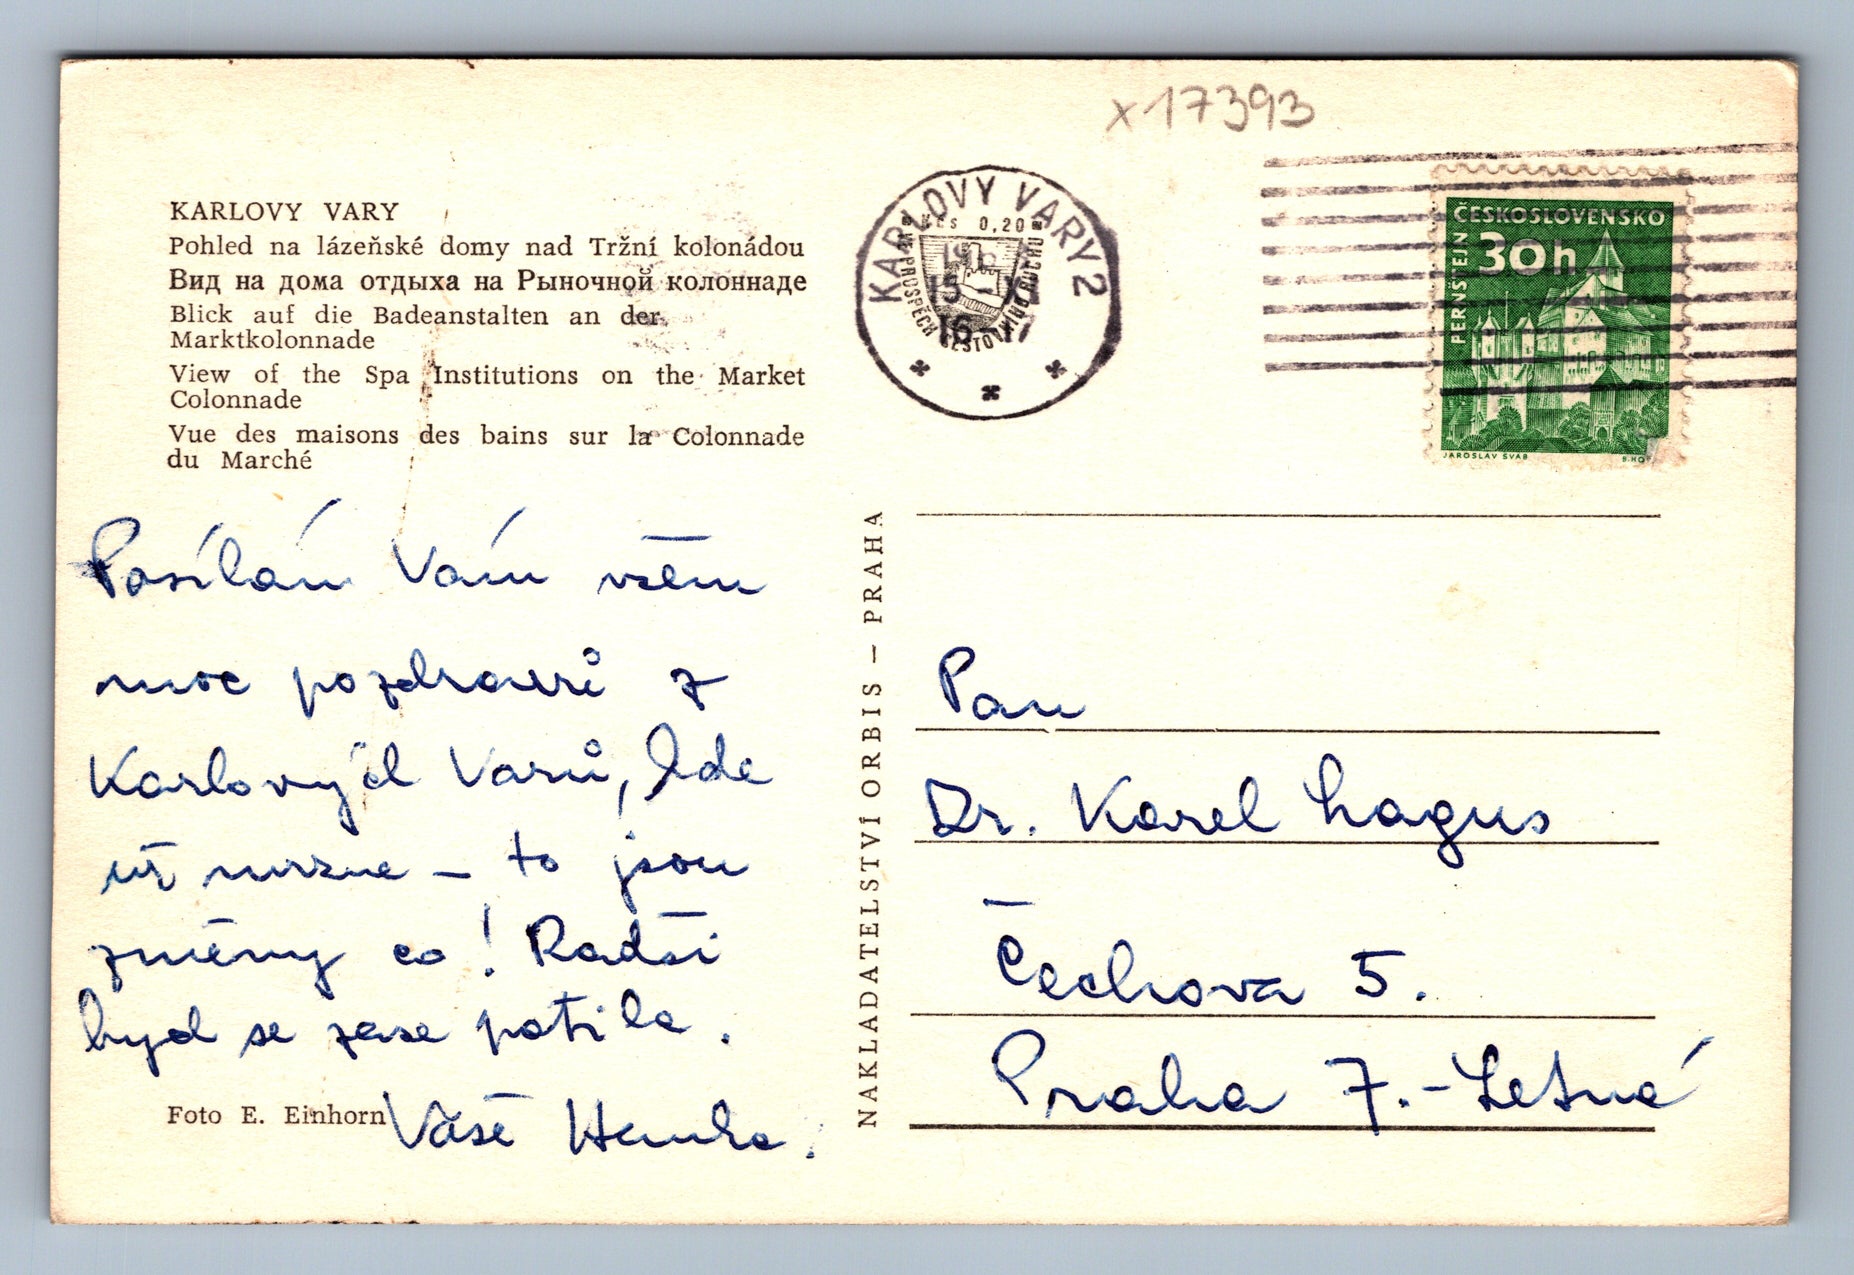 x 17393
KARLOVY VARY
Pohled na lázeňské domy nad Tržní kolonádou
Вид на дома отдыха на Рыночной колоннаде
Blick auf die Badeanstalten an der
Marktkolonnade
View of the Spa Institutions on the Market
Colonnade
Vue des maisons des bains sur la Colonnade
du Marché
Posílám Vám všem
moc pozdravů z
Karlových Varů, kde
už mrzne – to jsou
změny co! Radši
bych se zase potila.
Foto E. Einhorn
Vaše Hanka.
NAKLADATELSTVÍ ORBIS — PRAHA
KARLOVY VARY 2
Kčs 0,20
VE PROSPĚCH CESTOVNÍHO RUCHU
ČESKOSLOVENSKO
30h
PERNŠTEJN
JAROSLAV ŠVÁB
Pan
Dr. Karel Lagus
Čechova 5.
Praha 7.-Letná